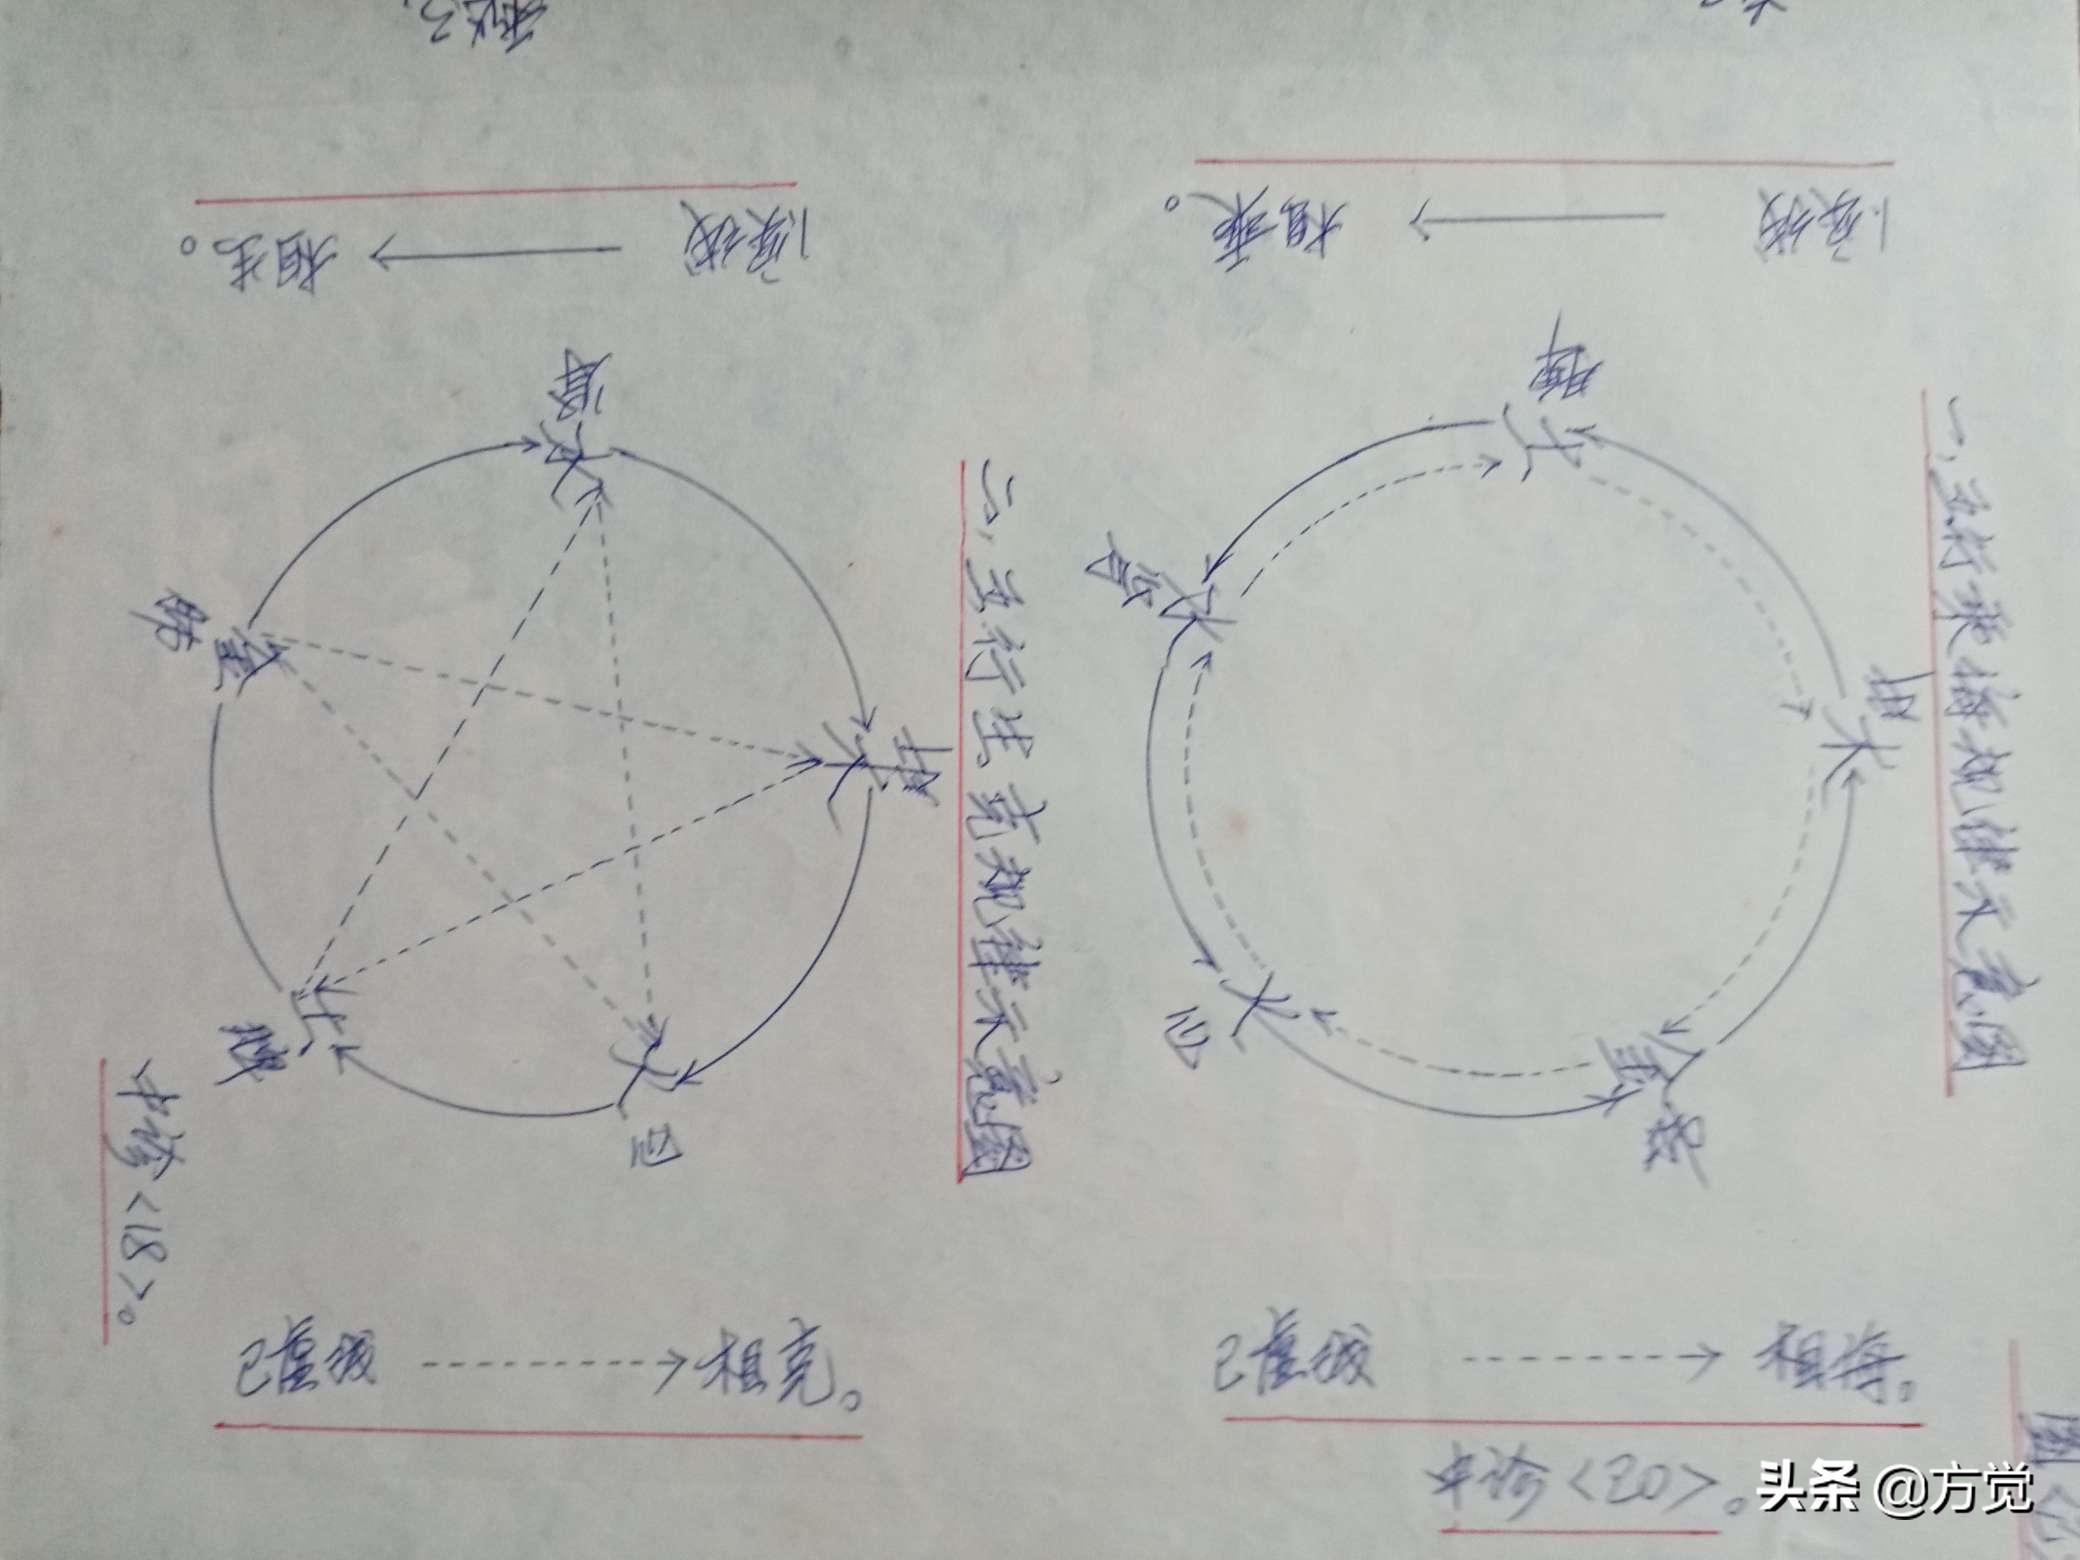 一，五行乘侮规律示意图
1.实线 → 相乘。
脾
土
肝
木
肾
水
心
火
金
肺
2虚线 → 相侮。
中诊<20>。
二，五行生克规律示意图
1.实线 → 相生。
肾
水
肝
木
肺
金
土
脾
火
心
2虚线 → 相克。
中诊<18>。
头条 @方觉